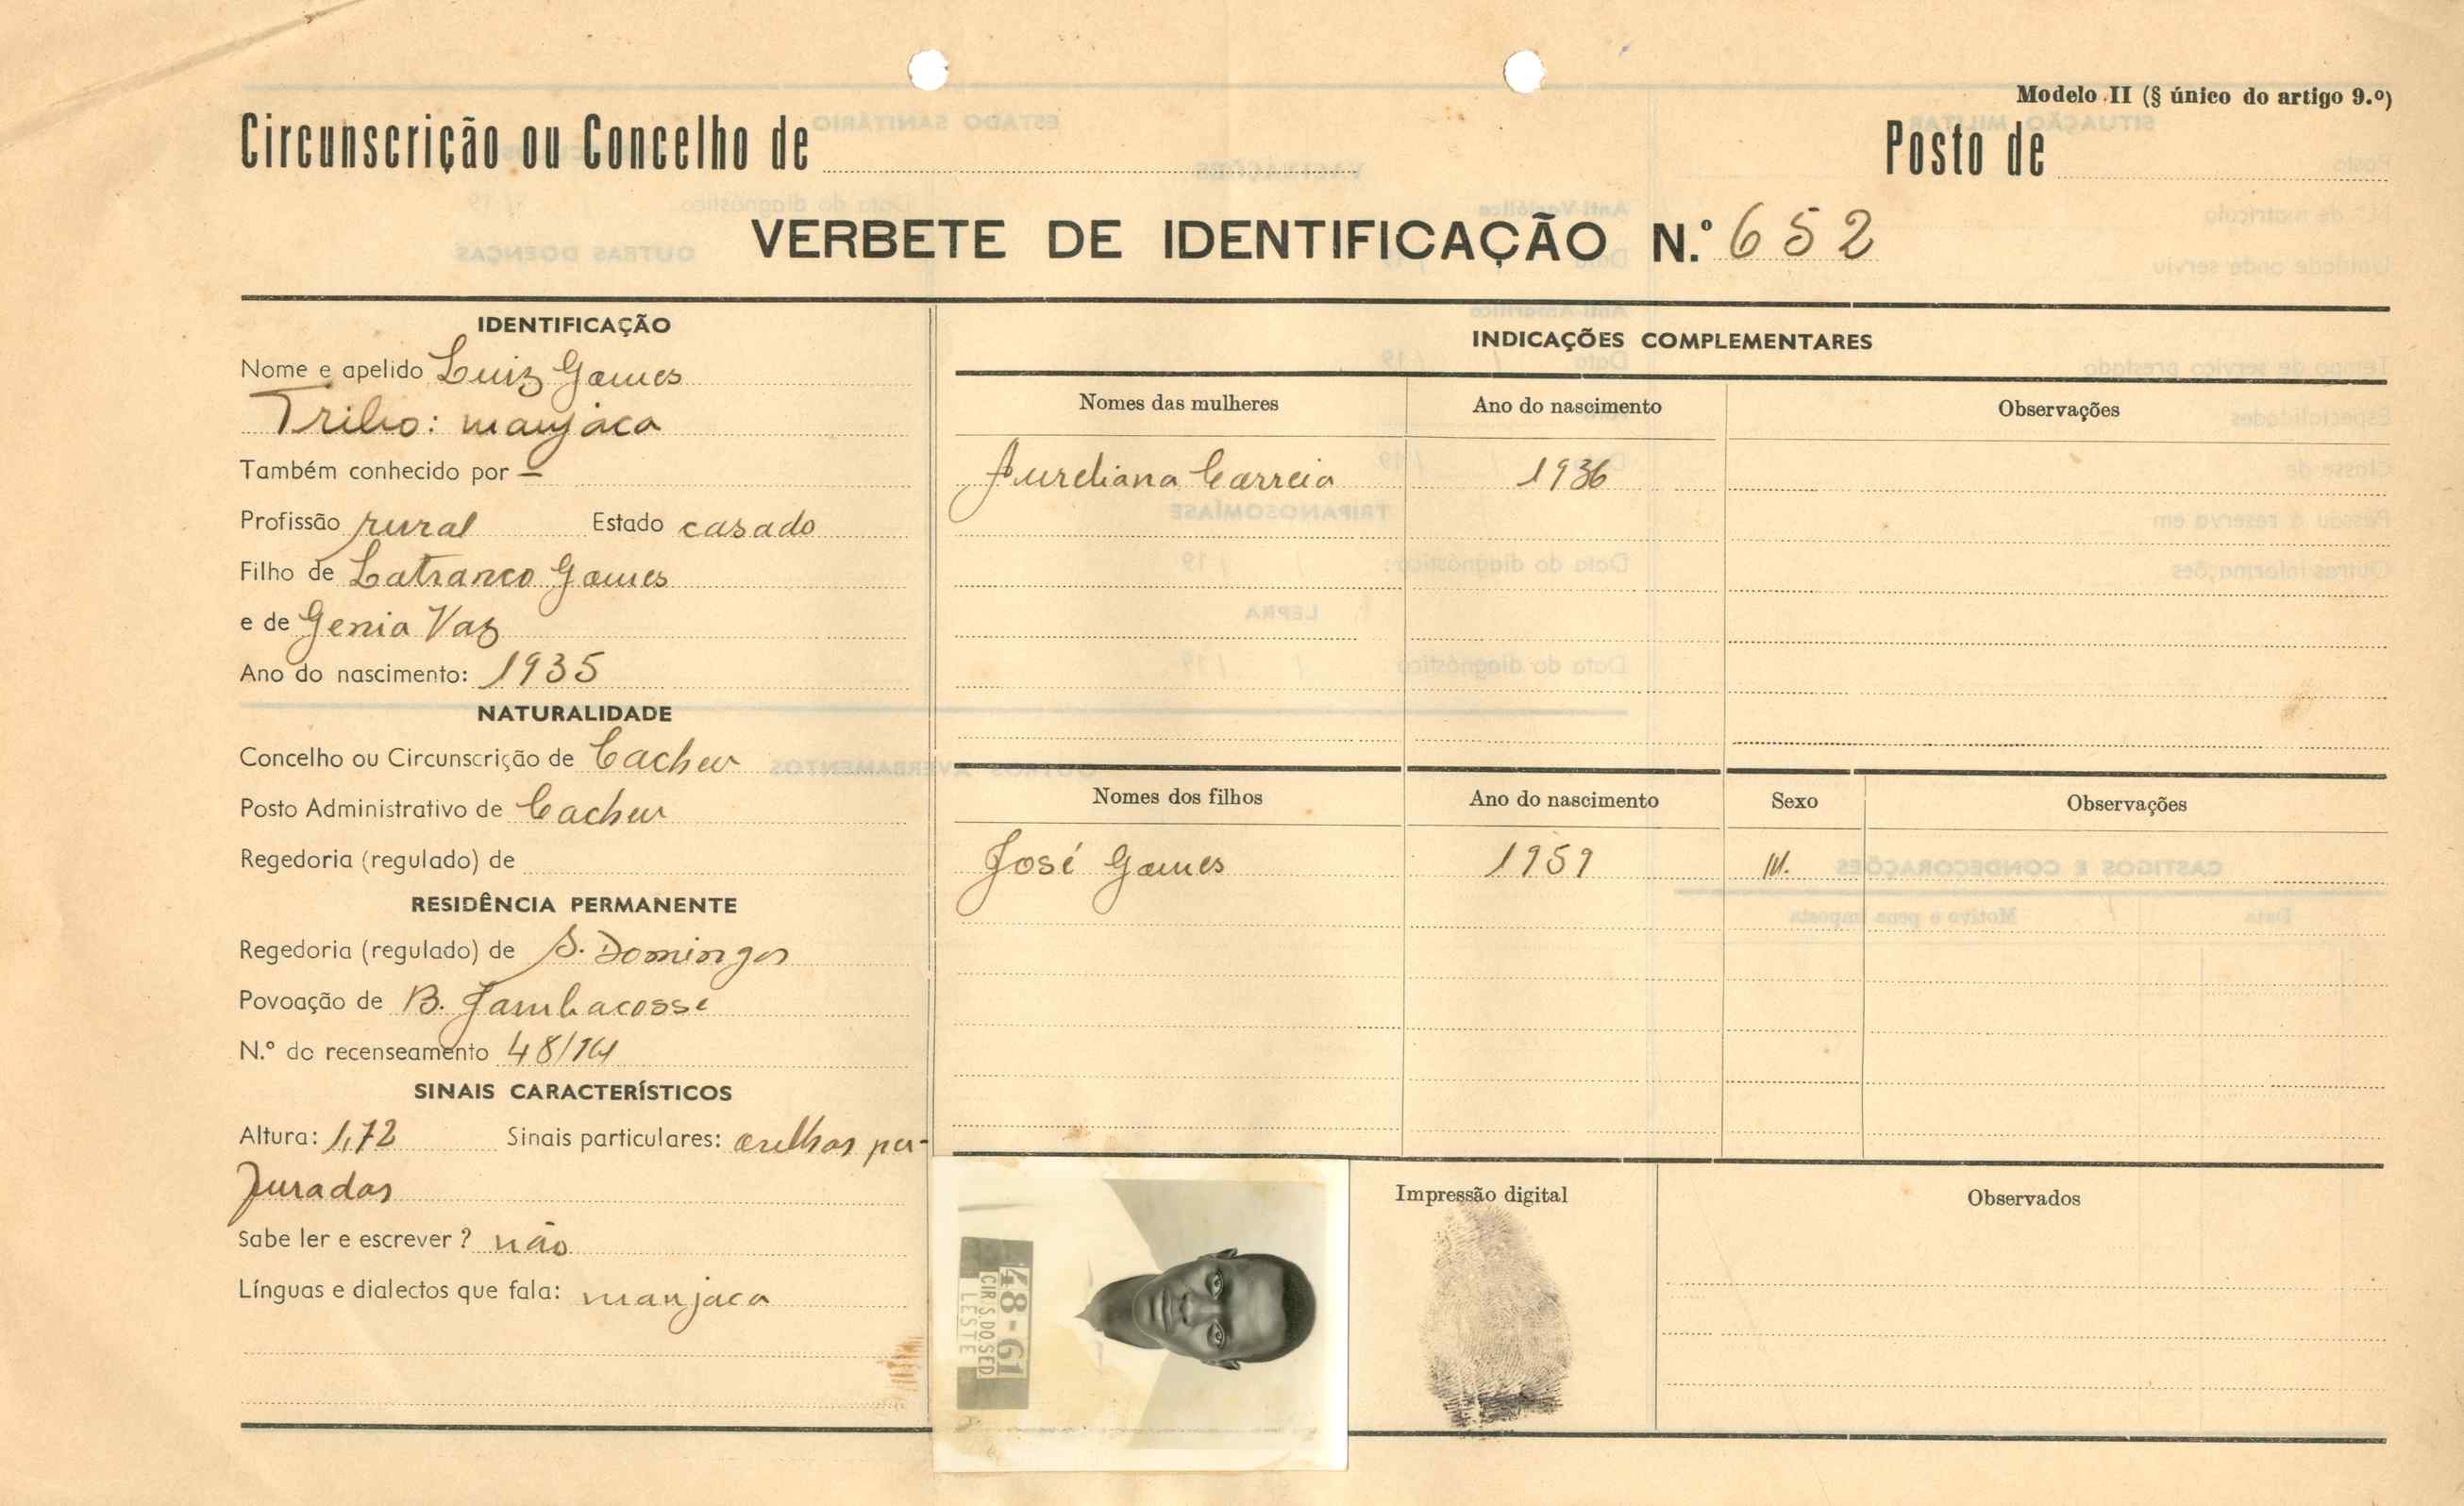 Modelo II (§ único do artigo 9.º)
Circunscrição ou Concelho de
Posto de
VERBETE DE IDENTIFICAÇÃO N.º 652
IDENTIFICAÇÃO
Nome e apelido Luiz Gomes
Tribo: manjaca
Também conhecido por —
Profissão rural Estado casado
Filho de Latranco Gomes
e de Genia Vaz
Ano do nascimento: 1935
NATURALIDADE
Concelho ou Circunscrição de Cacheu
Posto Administrativo de Cacheu
Regedoria (regulado) de
RESIDÊNCIA PERMANENTE
Regedoria (regulado) de S. Domingos
Povoação de B. Jambacosse
N.º do recenseamento
SINAIS CARACTERÍSTICOS
Altura: 1,72 Sinais particulares: orelhas per-
furadas
Sabe ler e escrever? não
Línguas e dialectos que fala: manjaca
INDICAÇÕES COMPLEMENTARES
Nomes das mulheres Ano do nascimento Observações
Aureliana Correia 1936
Nomes dos filhos Ano do nascimento Sexo Observações
José Gomes 1959 M.
48-61
CIR.S.DO.SED
LESTE
Impressão digital
Observados